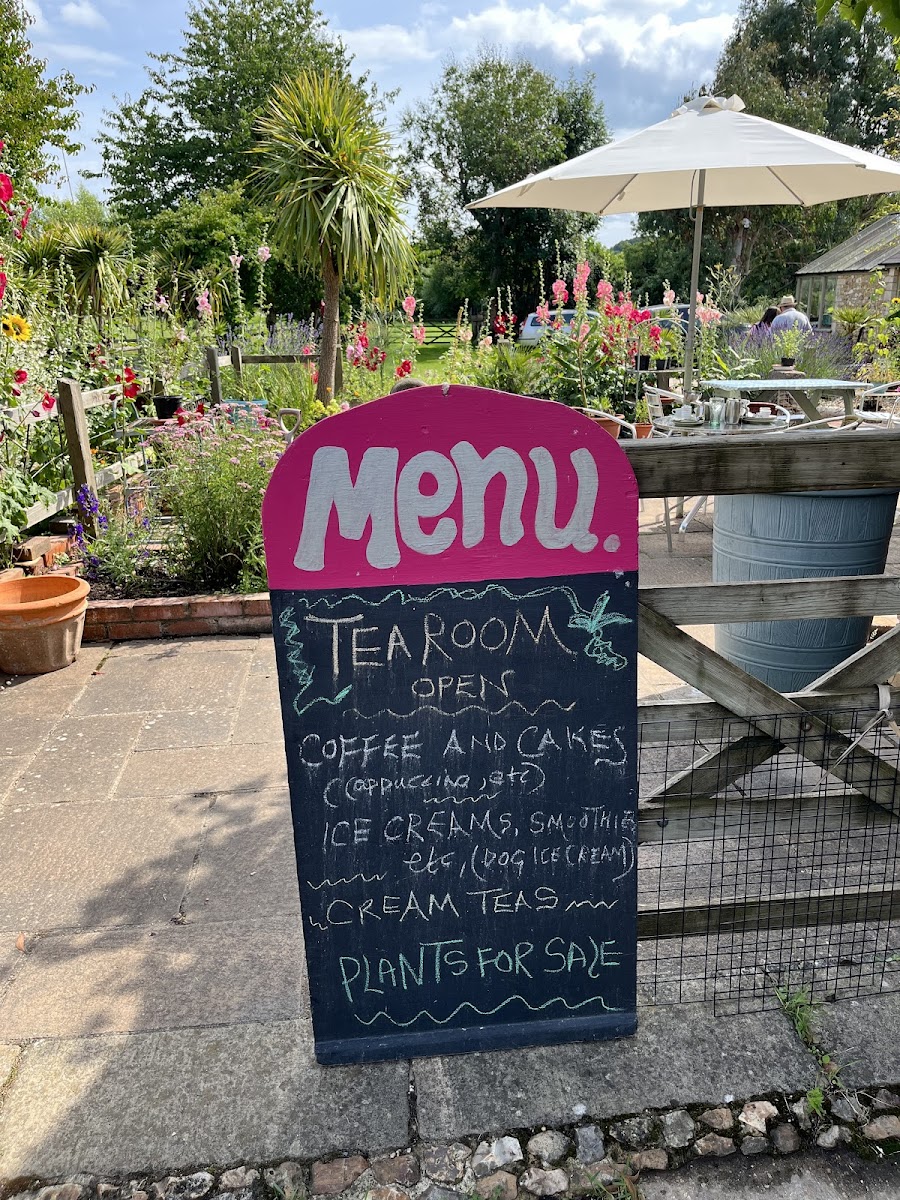 Menu.
TEA ROOM
OPEN
COFFEE AND CAKES
(Cappuccino, etc)
ICE CREAMS, SMOOTHIE
etc, (DOG ICE CREAM)
CREAM TEAS
PLANTS FOR SALE